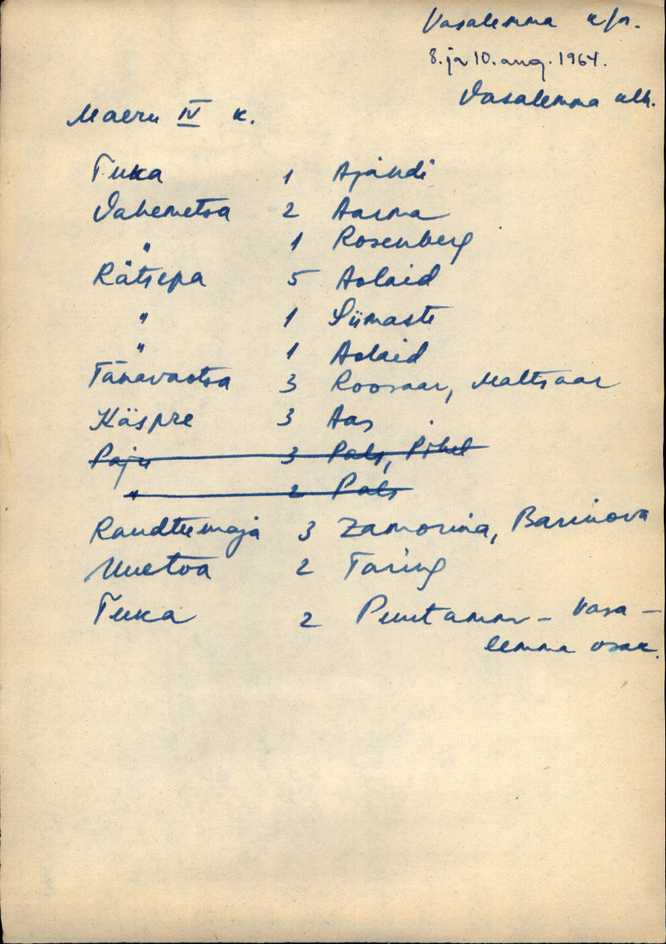 Vasalemma k/n.
8. ja 10. aug. 1964.
Vasalemma alh.
Maeru IV k.
Tuka 1 Ajandi
Vahemetsa 2 Aasma
" 1 Rosenberg
Rätsepa 5 Aolaid
" 1 Siimaste
" 1 Aolaid
Tänavaotsa 3 Roosaar, Maltsaar
Käspre 3 Aas
Paju 3 Pals, Pihel
" 2 Pals
Raudteemaja 3 Zamorina, Barinova
Uuetoa 2 Taring
Tuka 2 Puutamm - Vasa-
lemma osak.